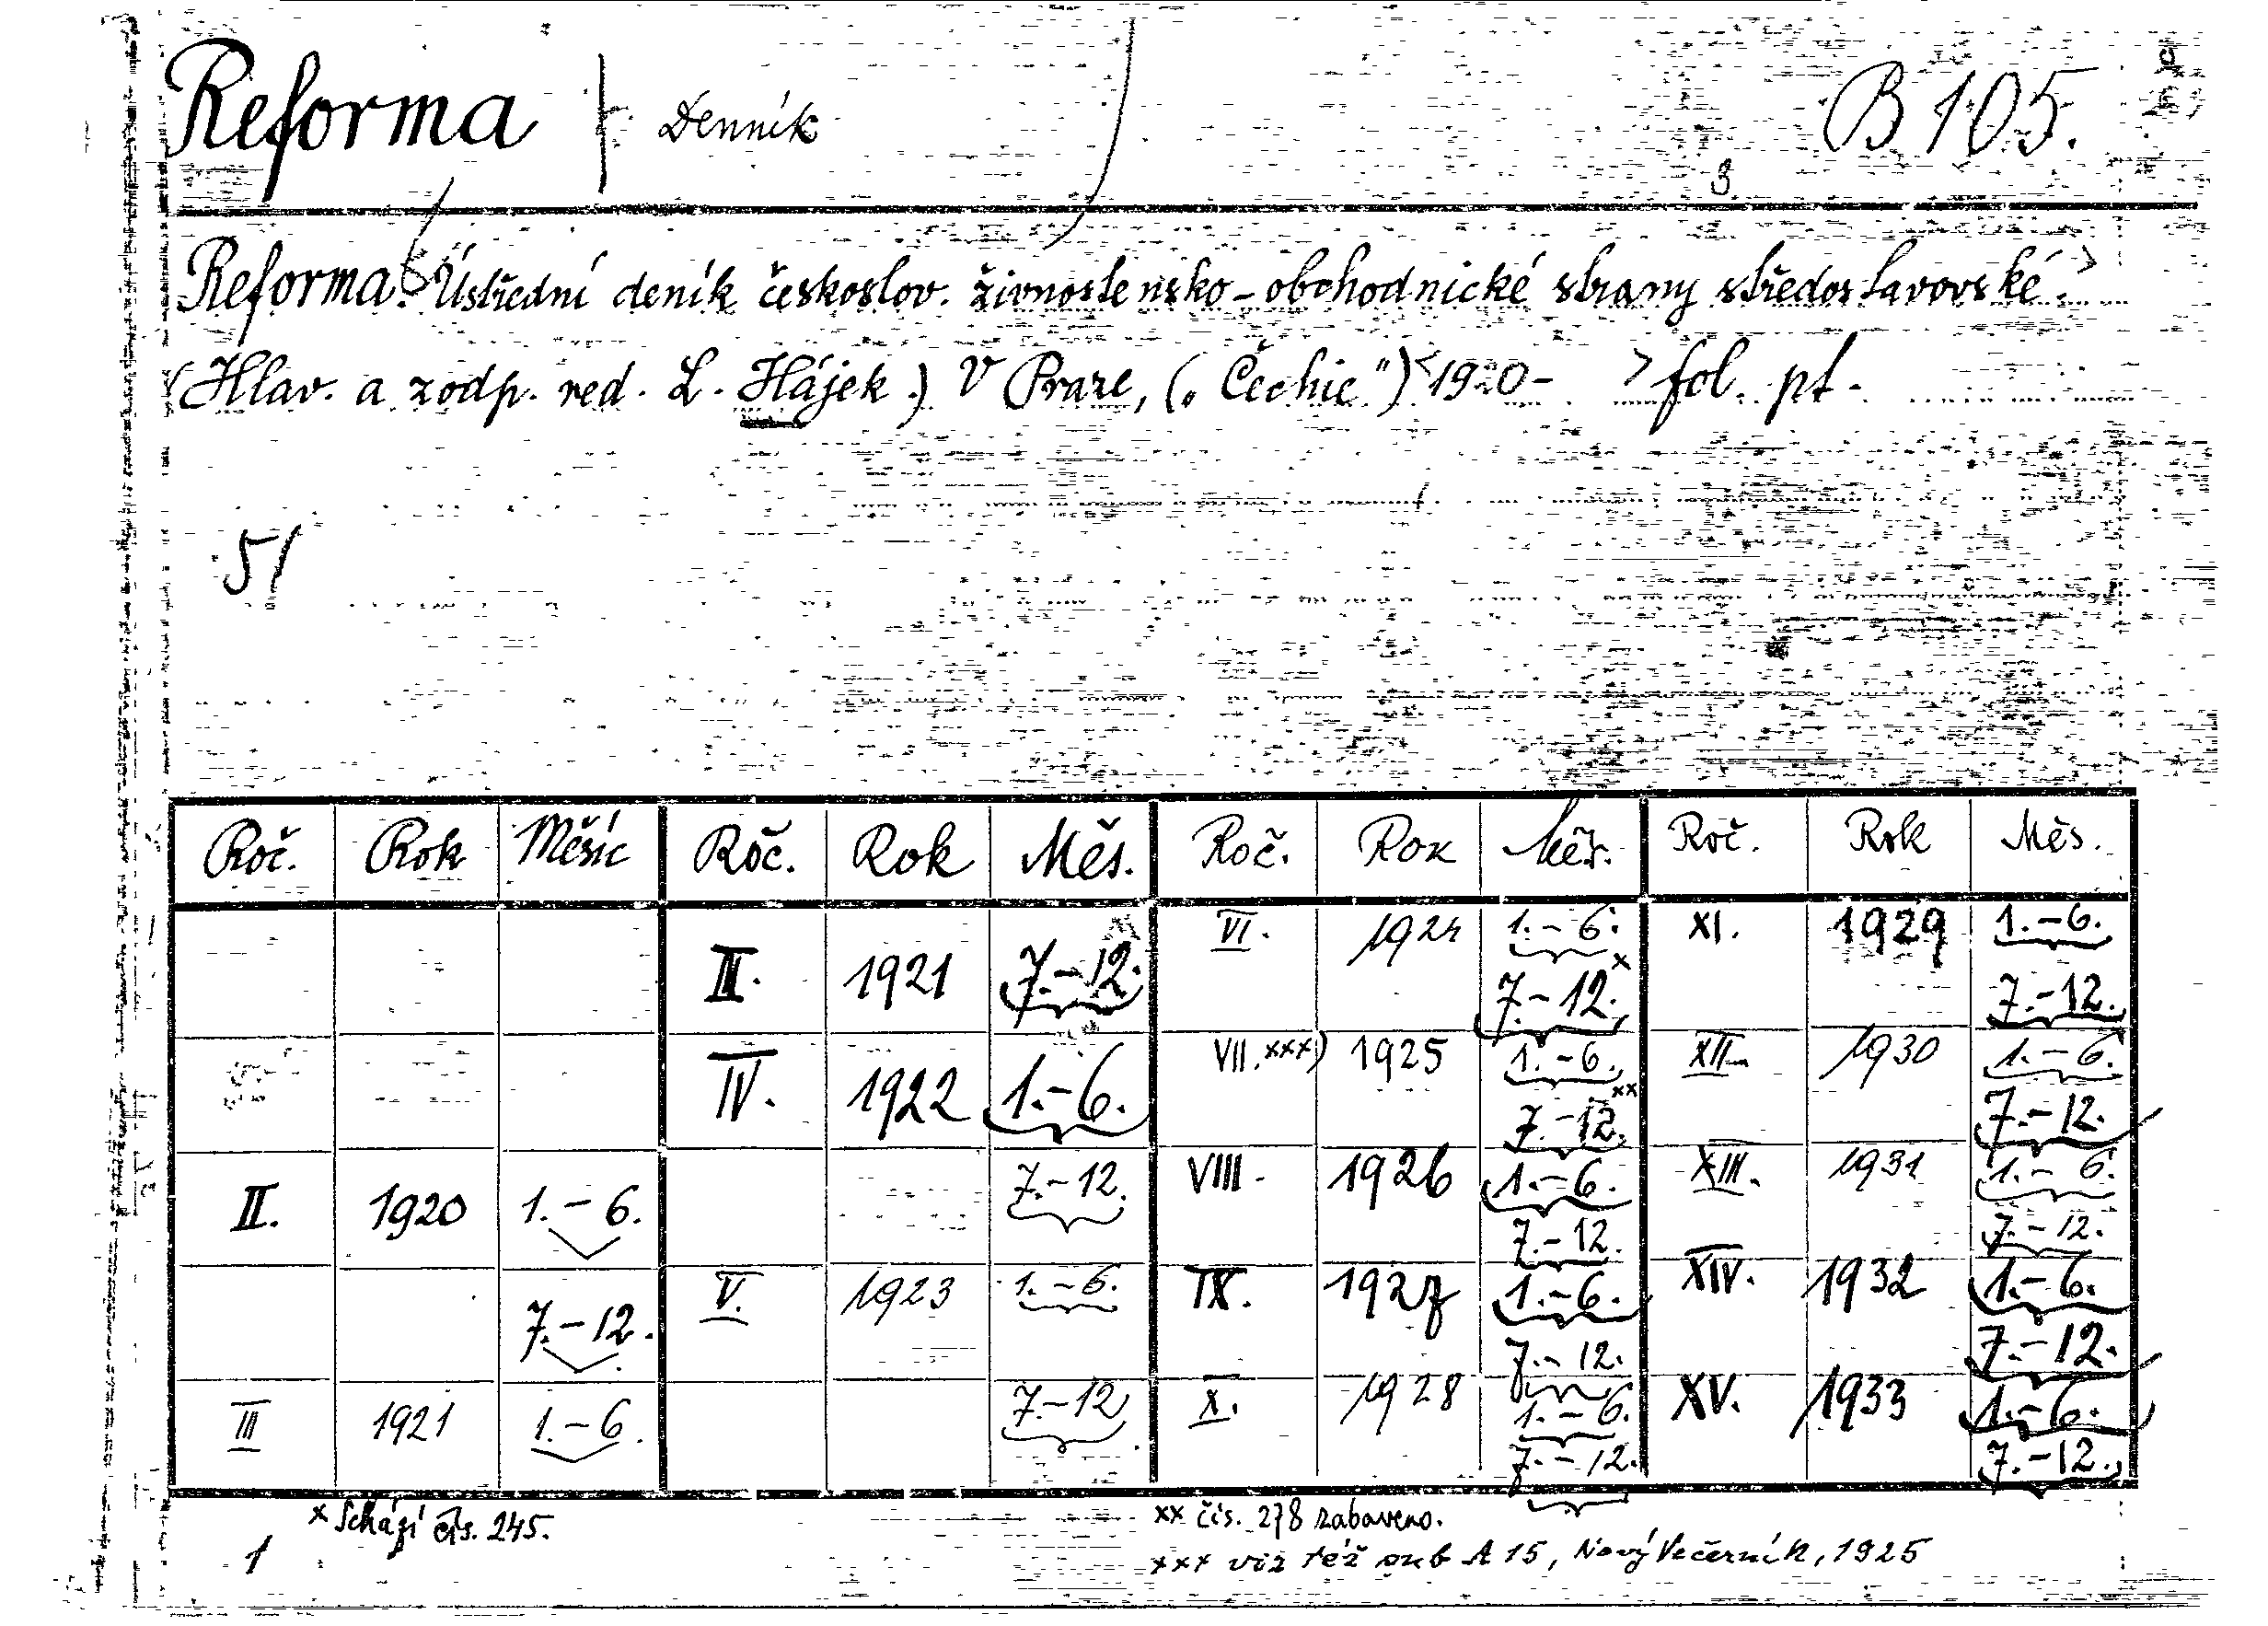 Reforma Denník B 105.
3
Reforma. Ústřední deník českoslov. živnostensko-obchodnické strany středostavovské.
(Hlav. a zodp. red. L. Hájek.) V Praze, („Čechie") 1920- fol. pt.
51
Roč. Rok Měsíc Roč. Rok Měs. Roč. Rok Měs. Roč. Rok Měs.
III. 1921 7.-12. VI. 1924 1.-6. XI. 1929 1.-6.
7.-12.x 7.-12.
IV. 1922 1.-6. VII. xxx) 1925 1.-6. XII. 1930 1.-6.
7.-12.xx 7.-12.
II. 1920 1.-6. 7.-12. VIII. 1926 1.-6. XIII. 1931 1.-6.
7.-12. 7.-12.
7.-12. V. 1923 1.-6. IX. 1927 1.-6. XIV. 1932 1.-6.
7.-12. 7.-12.
III 1921 1.-6. 7.-12 X. 1928 1.-6. XV. 1933 1.-6.
7.-12. 7.-12.
x Schází čís. 245. xx čís. 278 zabaveno.
1 xxx viz též sub A 15, Nový Večerník, 1925